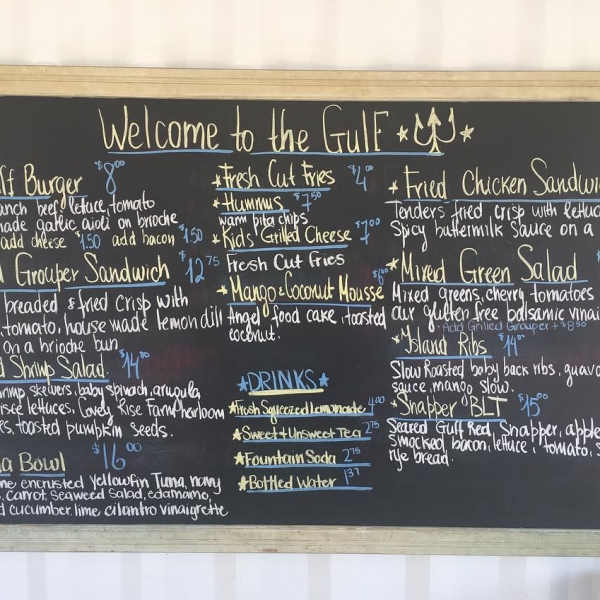 Welcome to the Gulf
ff Burger $8.00
anch beef, lettuce, tomato
made garlic aioli on brioche
add cheese $1.50 add bacon $1.50
Grouper Sandwich $12.75
breaded & fried crisp with
tomato, house made lemon dill
on a brioche bun
d Shrimp Salad $14.00
skewers, baby spinach, arugula,
lettuces, Covey Rise Farm heirloom
es, toasted pumpkin seeds.
a Bowl $16.00
encrusted Yellowfin Tuna, navy
carrot, seaweed salad, edamame,
d cucumber, lime cilantro vinaigrette
Fresh Cut Fries $4.00
Hummus $7.50
warm pita chips
Kid's Grilled Cheese $7.00
Fresh Cut Fries
Mango & Coconut Mousse
Angel food cake, toasted
coconut.
DRINKS
Fresh Squeezed Lemonade 4.00
Sweet & Unsweet Tea 2.75
Fountain Soda 2.75
Bottled Water 1.37
Fried Chicken Sandwi
Tenders fried crisp with lettuc
Spicy buttermilk sauce on a
Mixed Green Salad $
Mixed greens, cherry tomatoes
our gluten free balsamic vinai
Add Grilled Grouper + $8.50
Island Ribs $14.00
Slow Roasted baby back ribs, guava
sauce, mango slow.
Snapper BLT $15.00
Seared Gulf Red Snapper, apple
smocked bacon, lettuce, tomato,
rye bread.